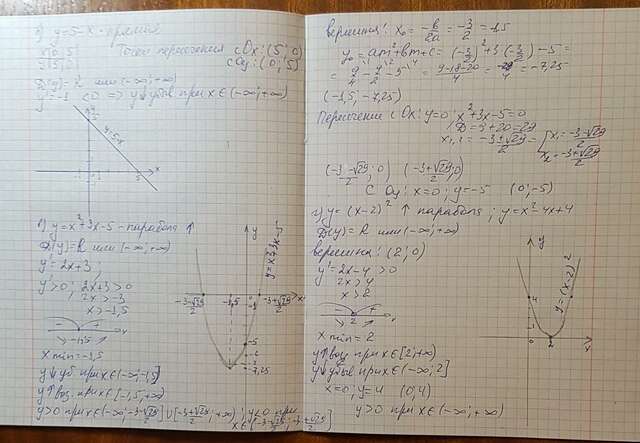 б) y=5-x - прямая
x|0|5|
y|5|0| Точки пересечения с Ox: (5; 0)
с Oy: (0; 5)
D(y)=R или (-∞; +∞)
y'=-1 <0 => y↓убыв при x∈(-∞; +∞)
y
5
y=5-x
1
1
5
x
в) y=x²+3x-5 - парабола ↑
D(y)=R или (-∞; +∞)
y'=2x+3
y'>0; 2x+3>0
2x>-3
x>-1,5
- +
-1,5
x
x min=-1,5
y↓уб. при x∈(-∞; -1,5]
y↑воз. при x∈[-1,5; +∞)
y>0 при x∈(-∞; -3-√29/2]∪[-3+√29/2; +∞); y<0 при
x∈[-3-√29/2; -3+√29/2]
y
y=x²+3x-5
-3-√29/2
-1,5
0
-3+√29/2
x
-5
-7,25
вершина: x₀=-b/2a=-3/2=-1,5
y₀=am²+bm+c=(-3/2)²+3(-3/2)-5=
=9/4-9/2-5=9-18-20/4=-29/4=-7,25
(-1,5; -7,25)
Пересечение с Ox: y=0; x²+3x-5=0
D=9+20=29
x₁,₂=-3±√29/2= [x₁=-3-√29/2
x₂=-3+√29/2
(-3-√29/2; 0) (-3+√29/2; 0)
С Oy: x=0; y=-5 (0; -5)
г) y=(x-2)² ↑ парабола; y=x²-4x+4
D(y)=R или (-∞; +∞)
вершина: (2; 0)
y'=2x-4>0
2x>4
x>2
- +
2
x
x min=2
y↑воз. при x∈[2; +∞)
y↓убыв при x∈(-∞; 2]
x=0; y=4 (0; 4)
y>0 при x∈(-∞; +∞)
y
4
y=(x-2)²
2
x